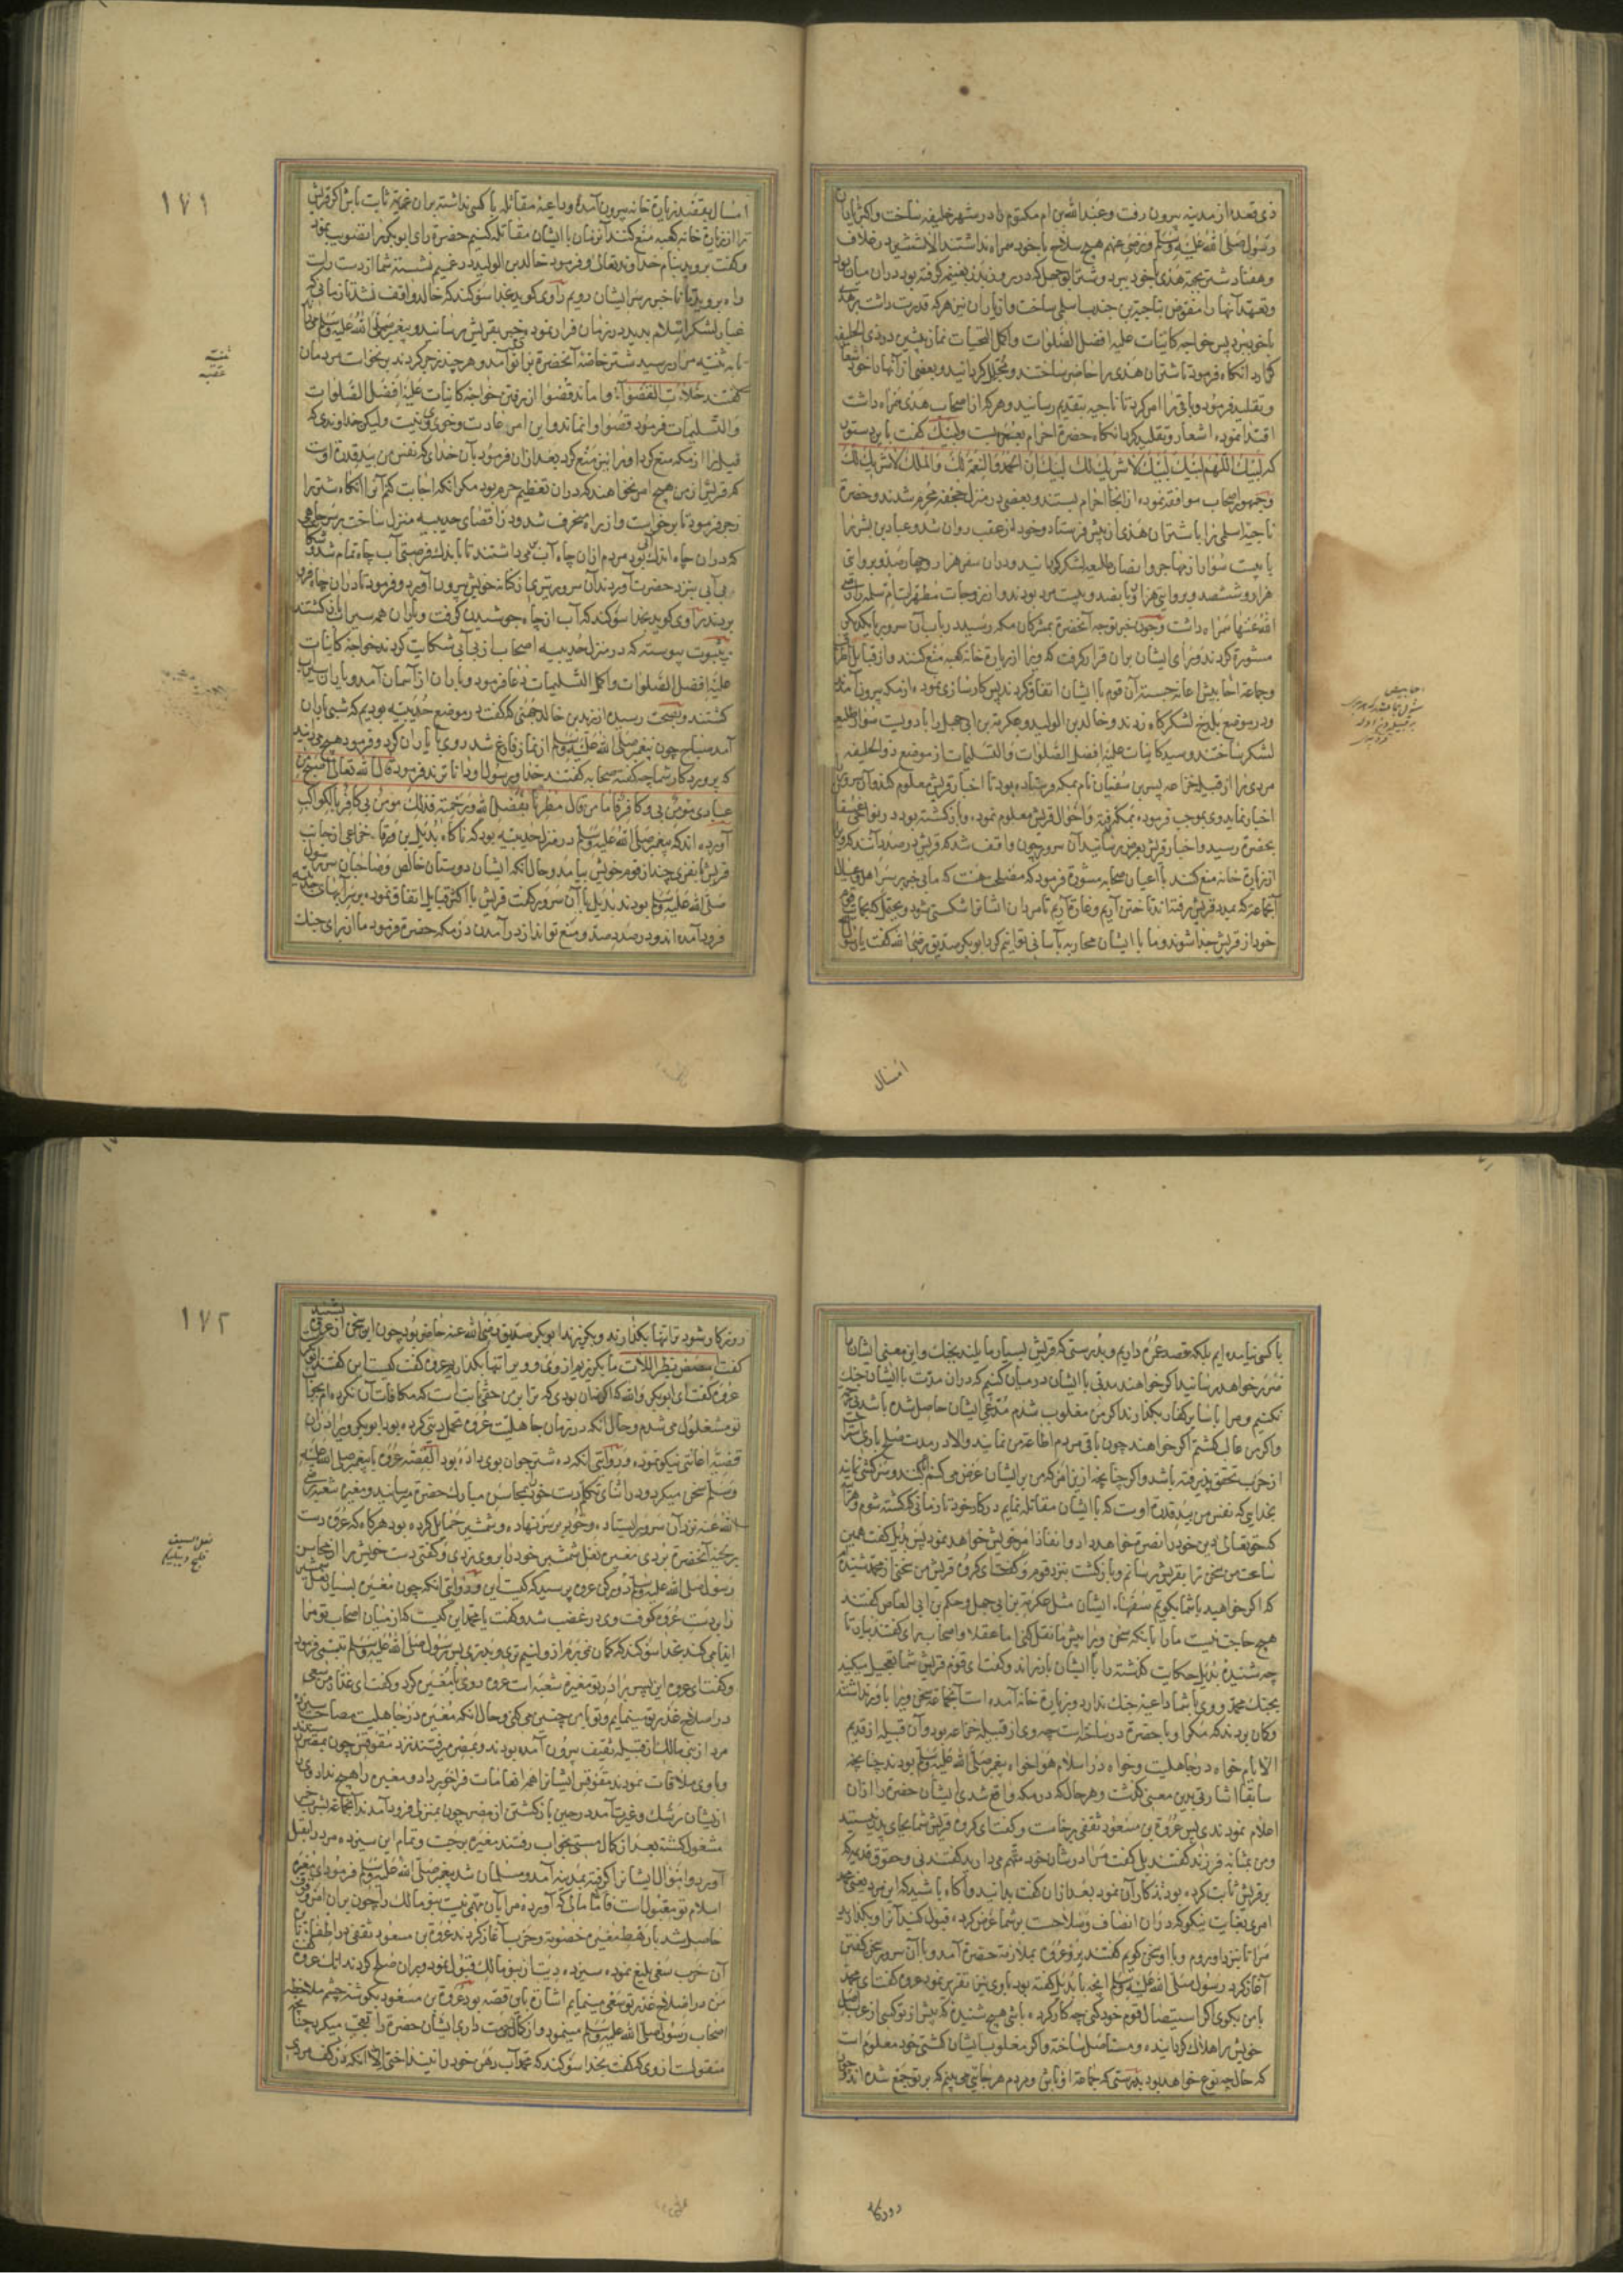 ذی قعده از مدینه بیرون رفت و عبدالله بن ام مکتوم را در شهر خلیفه ساخت و اکثر یاران
رسول صلی الله علیه وسلم ورضی عنهم هیچ سلاح با خود همراه نداشتند الا شمشیر در غلاف
وهفتاد شتر بجهة هدی با خود ببرد وشتر ابوجهل که در روز بدر بغنیمت گرفته بود در ان میان بود
وتعهد آنها را مفوض بناجیة بن جندب اسلمی ساخت واز یاران نیز هر که قدرت داشت هدی
با خود ببرد پس خواجه کاینات علیه افضل الصلوات واکمل التحیات نماز پیشین در ذی الحلیفه
گزارد انگاه فرمود تا شتران هدی را حاضر ساختند ومجلل گردانید وبعضی از آنها را خود اشعار
وتقلید فرمود وباقی را امر کرد تا ناجیه بتقدیم رسانید وهر که از اصحاب هدی همراه داشت
اقتدا نموده اشعار وتقلید کرد انگاه حضرة احرام بعمره بست ولبیک گفت باین دستور
که لبیک اللهم لبیک لبیک لا شریک لک لبیک ان الحمد والنعمة لک والملک لا شریک لک
وجمهور اصحاب موافقه نموده از انجا احرام بستند وبعضی در منزل جحفه محرم شدند وحضرة
ناجیة اسلمی را با شتران هدی از پیش فرستاد وخود از عقب روان شد وعباد بن بشر را
با بیست سوار از مهاجر وانصار طلیعه لشکر گردانید ودران سفر هزار وچهارصد وبروایتی
هزار وششصد وبروایتی هزار وپانصد وبیست مرد بودند واز زوجات مطهرات ام سلمه رضی
الله عنها همراه داشت وچون خبر توجه آنحضرة بمشرکان مکه رسید در باب آن سرور با یکدیگر
مشورة کردند ورای ایشان بران قرار گرفت که ویرا از زیارة خانه کعبه منع کنند واز قبایل اطراف
وجماعة احابیش اعانه جسته آن قوم با ایشان اتفاق کردند پس کارسازی نموده از مکه بیرون آمدند
ودر موضع بلدح لشکرگاه زدند وخالد بن الولید وعکرمة بن ابی جهل را با دویست سوار طلیعه
لشکر ساختند وسید کاینات علیه افضل الصلوات والتسلیمات از موضع ذوالحلیفه
مردی را از قبیله خزاعه بسر بن سفیان نام بمکه فرستاده بود تا اخبار قریش معلوم کند وآن سرور را
اخبار نماید وی بموجب فرموده بمکه رفته واحوال قریش معلوم نموده وبازگشته بود در نواحی عسفان
بحضرة رسید واخبار قریش بعرض رسانید آن سرور چون واقف شد که قریش در صدد آنند که ویرا
از زیارة خانه منع کنند با اعیان صحابه مشورة فرمود که مصلحت هست که ما بی خبر بر سر اهل وعیال
آنجماعة که بمدد قریش رفته اند تاختن آریم وغارة آریم تا مردان ایشان را شکستی شود
خود از قریش جدا شوند وما با ایشان محاربه بآسانی توانیم کرد ابوبکر صدیق رضی الله گفت یا رسول
امسال
١٧١
امسال بقصد زیارة خانه بیرون آمدۀ وداعیۀ مقاتله با کسی نداشته بران عزیمة ثابت باش اگر قریش
ترا از زیارة خانه کعبه منع کنند آنزمان با ایشان مقاتله کنیم حضرة رای ابوبکر را تصویب نمود
وگفت بروید بنام خداوند تعالی وفرمود خالد بن الولید در غمیم نشسته شما از دست راست
راه بروید تا ناخبر بر سر ایشان رویم راوی گوید بخدا سوگند که خالد واقف نشد تا زمانی که
غبار لشکر اسلام بدید در زمان فرار نمود وخبر بقریش رسانید وپیغمبر صلی الله علیه وسلم
تا به ثنیه مرار رسید شتر خاصه آنحضرة بزانو آمد وهر چند زجر کردند برنخواست مردمان
گفتند خلأت القصوا واماند قصوا از رفتن خواجه کاینات علیه افضل الصلوات
والتسلیمات فرمود قصوا وانماند واین امر عادت وخوی وی نیست ولیکن خداوندی که
فیل را از مکه منع کرد اورا نیز منع کرد بعد ازان فرمود بآن خدای که نفس من بید قدرة اوست
که قریش از من هیچ امر نخواهند که دران تعظیم حرم بود مگر آنکه اجابت کنم آنرا انگاه شتر را
زجر فرمود تا برخواست واز راه منحرف شد ودر اقصای حدیبیه منزل ساخت بر سر چاهی
که دران چاه اندک آبی بود مردم ازان چاه آب می داشتند تا باندک فرصتی آب چاه تمام شد
بی آبی بنزد حضرت آوردند آن سرور تیری از کنانه خویش بیرون آورد وفرمود تا دران چاه فرو
بردند راوی گوید بخدا سوگند که آب از چاه جوشیدن گرفت ویاران همه سیراب بازگشتند
بثبوت پیوسته که در منزل حدیبیه اصحاب از بی آبی شکایت کردند خواجه کاینات
علیه افضل الصلوات واکمل التسلیمات دعا فرمود وباران از آسمان آمد ویاران سیراب
گشتند وبصحت رسیده از زید بن خالد جهنی که گفت در موضع حدیبیه بودیم که شبی باران
آمد صباح چون پیغمبر صلی الله علیه وسلم از نماز فارغ شد روی با یاران کرد وفرمود هیچ می دانید
که پروردگار شما چه گفت صحابه گفتند خدا ورسول او داناترند فرمود قال الله تعالی اصبح من
عبادی مومن بی وکافر فاما من قال مطرنا بفضل الله ورحمته فذلک مومن بی کافر بالکواکب
آورده اند که پیغمبر صلی الله علیه وسلم در منزل حدیبیه بود که ناگاه بدیل بن ورقاء خزاعی از جانب
قریش با نفری چند از قوم خویش بیامد وحال آنکه ایشان دوستان خالص وصاحبان سر رسول
صلی الله علیه وسلم بودند بدیل با آن سرور گفت قریش با اکثر قبایل اتفاق نموده بر سر آبهای حدیبیه
فرود آمده اند ودر صدد صد ومنع تو اند از درآمدن در مکه حضرة فرمود ما از برای جنک
ثنیه
عقبه
با کسی نیامده ایم بلکه قصد عمره داریم وبدرستی که قریش بسیار مایلند بجنک واین معنی ایشان را
ضرر خواهد رسانید اگر خواهند مدتی با ایشان در میان کنیم که دران مدت با ایشان جنک
نکنیم ومرا با سایر کفار بگذارند اگر من مغلوب شدم مدعی ایشان حاصل شده باشد
واگر من غالب گشتم اگر خواهند چون باقی مردم اطاعة من نمایند والا در مدت صلح باری استراحت
از حرب تحقق پذیرفته باشد واگر چنانچه ازین امر که من بر ایشان عرض می کنم سرکشی نمایند
بخدایی که نفس من بید قدرة اوست که با ایشان مقاتله نمایم در کار خود تا زمانی که کشته شوم
که حق تعالی دین خود را نصرة خواهد داد وانفاذ امر خویش خواهد نمود پس بدیل گفت همین
ساعت من سخن ترا بقریش رسانم وبازگشت بنزد قوم وگفت ای گروه قریش من سخنی از محمد شنیده ام
که اگر خواهید با شما بگویم سفهاء ایشان مثل عکرمة بن ابی جهل وحکم بن ابی العاص گفتند
هیچ حاجت نیست ما را بآنکه سخن ویرا پیش ما نقل کنی اما عقلا واصحاب رای گفتند بیان تا
چه شنیدۀ بدیل حکایات گذشته را با ایشان باز راند وگفت ای قوم قریش شما تعجیل میکنید
بجنک محمد ووی با شما داعیۀ جنک ندارد وبزیارة خانه آمده است آنجماعة سخن ویرا باور نداشتند
وگمان بردند که مگر او با حضرة در ساخته است چه وی از قبیله خزاعه بود وآن قبیله از قدیم
الایام خواه در جاهلیت وخواه در اسلام هواخواه پیغمبر صلی الله علیه وسلم بودند چنانچه
سابقا اشارتی بدین معنی گذشت وهر حال که در مکه واقع شدی ایشان حضرة را ازان
اعلام نمودندی پس عروة بن مسعود ثقفی برخاست وگفت ای گروه قریش شما بجای پدر نیستید
ومن بمثابه فرزند گفتند بلی گفت مرا در شان خود متهم می دارید گفتند نی وحقوق قدیم که
بر قریش ثابت کرده بود تذکار آن نمود بعد ازان گفت بدانید وآگاه باشید که این مرد یعنی محمد
امری بغایت نیکو که دران انصاف وصلاحست بر شما عرض کرده قبول کنید آنرا وبگذارید
مرا تا بنزد او روم وبا او سخن گویم گفتند برو عروه بملازمة حضرة آمد وبا آن سرور سخن گفتن
آغاز کرد ورسول صلی الله علیه وسلم آنچه با بدیل گفته بود با وی نیز تقریر نمود عروه گفت ای محمد
با من بگوی اگر استیصال قوم خود کنی چه کار کرده باشی هیچ شنیدۀ که پیش از تو کسی از عرب اصل
خویش را هلاک گردانیده ومستاصل ساخته واگر مغلوب ایشان گشتی خود معلوم است
که حال چه نوع خواهد بود بدرستی که جماعة اوباش ومردم هر جایی می بینم که بر تو جمع شده اند
دو روز که
١٧٢
روز کار شود ترا تنها بگذارند وبگریزند ابوبکر صدیق رضی الله عنه حاضر بود چون این سخن از عروه بشنید
گفت امصص بظر اللات ما بگریزیم از وی وویرا تنها بگذاریم عروه گفت کیست این گفتند ابوبکر
عروه گفت ای ابوبکر والله که اگر نه آن بودی که ترا بر من حقی ثابت است که مکافات آن نکرده ام بجواب
تو مشغول می شدم وحال آنکه در زمان جاهلیت عروه تحمل دیتی کرده بود ابوبکر ویرا دران
قضیه اعانتی نیکو نموده ودر روایتی آنکه ده شتر جوان بوی داده بود القصه عروه با پیغمبر صلی الله علیه
وسلم سخن میکرد ودر اثنای تکلم دست خود بمحاسن مبارک حضرة می رسانید ومغیرة بن شعبه رضی
الله عنه نزد آن سرور ایستاده وخود بر سر نهاده وشمشیر حمایل کرده بود هر گاه که عروه دست
بر لحیه آنحضرة بردی مغیره نعل شمشیر خود را بر وی زدی وگفتی دست خویش را از محاسن
رسول صلی الله علیه وسلم دور کن عروه پرسید که کیست این ودر روایتی آنکه چون مغیره بسیار نعل شمشیر
را بر دست عروه کوفت وی در غضب شد وگفت یا محمد این کیست که از میان اصحاب تو مرا
ایذا می کند بخدا سوگند که گمان نمی برم از و لئیم تری وبدتری پس رسول صلی الله علیه وسلم تبسم فرمود
وگفت ای عروه این پسر برادر تو مغیرة بن شعبه است عروه روی با مغیره کرد وگفت ای غدار من سعی
در اصلاح غدر تو مینمایم وتو با من چنین می کنی وحال آنکه مغیره در جاهلیت مصاحب سیزده
مرد از بنی مالک از قبیله ثقیف بیرون آمده بودند وبمصر رفتند نزد مقوقس چون بمصر رسیدند
وبا وی ملاقات نمودند مقوقس ایشان را همه انعامات فراخور داد ومغیره را هیچ نداد وی
ازیشان برشک وغیرت آمد در حین بازگشتن از مصر چون بمنزلی فرود آمدند آنجماعة بشرب خمر
مشغول گشته بعد از کمال مستی بخواب رفتند مغیره برجست وتمام این سیزده مرد را بقتل
آورد واموال ایشان را گرفته بمدینه آمد ومسلمان شد پیغمبر صلی الله علیه وسلم فرمود ای مغیره
اسلام تو مقبولست فاما مالی که آورده مرا بآن مهمی نیست بنو مالک را چون بران امر وقوف
حاصل شد با رهط مغیره خصومة وحرب آغاز کردند عروة بن مسعود ثقفی در اطفاء نایرۀ
آن حرب سعی بلیغ نموده سیزده دیت از بنو مالک قبول نمود وبران صلح کردند آنک عروه گفت
من در اصلاح غدر تو سعی مینمایم اشارة باین قصه بود عروة بن مسعود بگوشۀ چشم ملاحظه
اصحاب رسول صلی الله علیه وسلم مینمود واز کمال حرمت داری ایشان حضرة را تعجب میکرد چنانچه
منقولست از وی که گفت بخدا سوگند که محمد آب دهن خود را نینداختی الا آنکه در کف مردی
نعل السیف